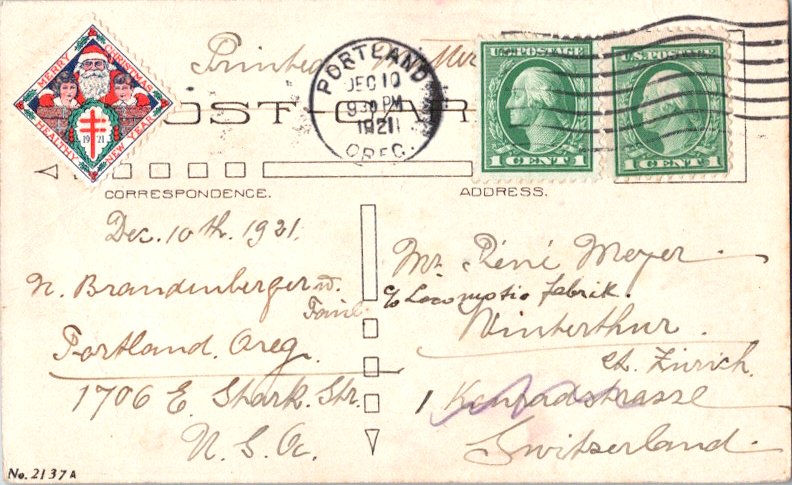 MERRY CHRISTMAS
HEALTHY NEW YEAR
1921
Printed
POST CARD
PORTLAND
DEC 10
930 PM
1921
OREG.
U.S. POSTAGE
1 CENT 1
U.S. POSTAGE
1 CENT 1
CORRESPONDENCE.
ADDRESS.
Dec. 10th. 1921.
N. Brandenberger u.
Famil.
Portland. Oreg.
1706 E. Stark. Str.
U. S. A.
Mr. Réné Meyer
c/o Locomotio fabrik.
Winterthur.
ct. Zürich.
1 Konradstrasse
Switzerland.
No. 2137A